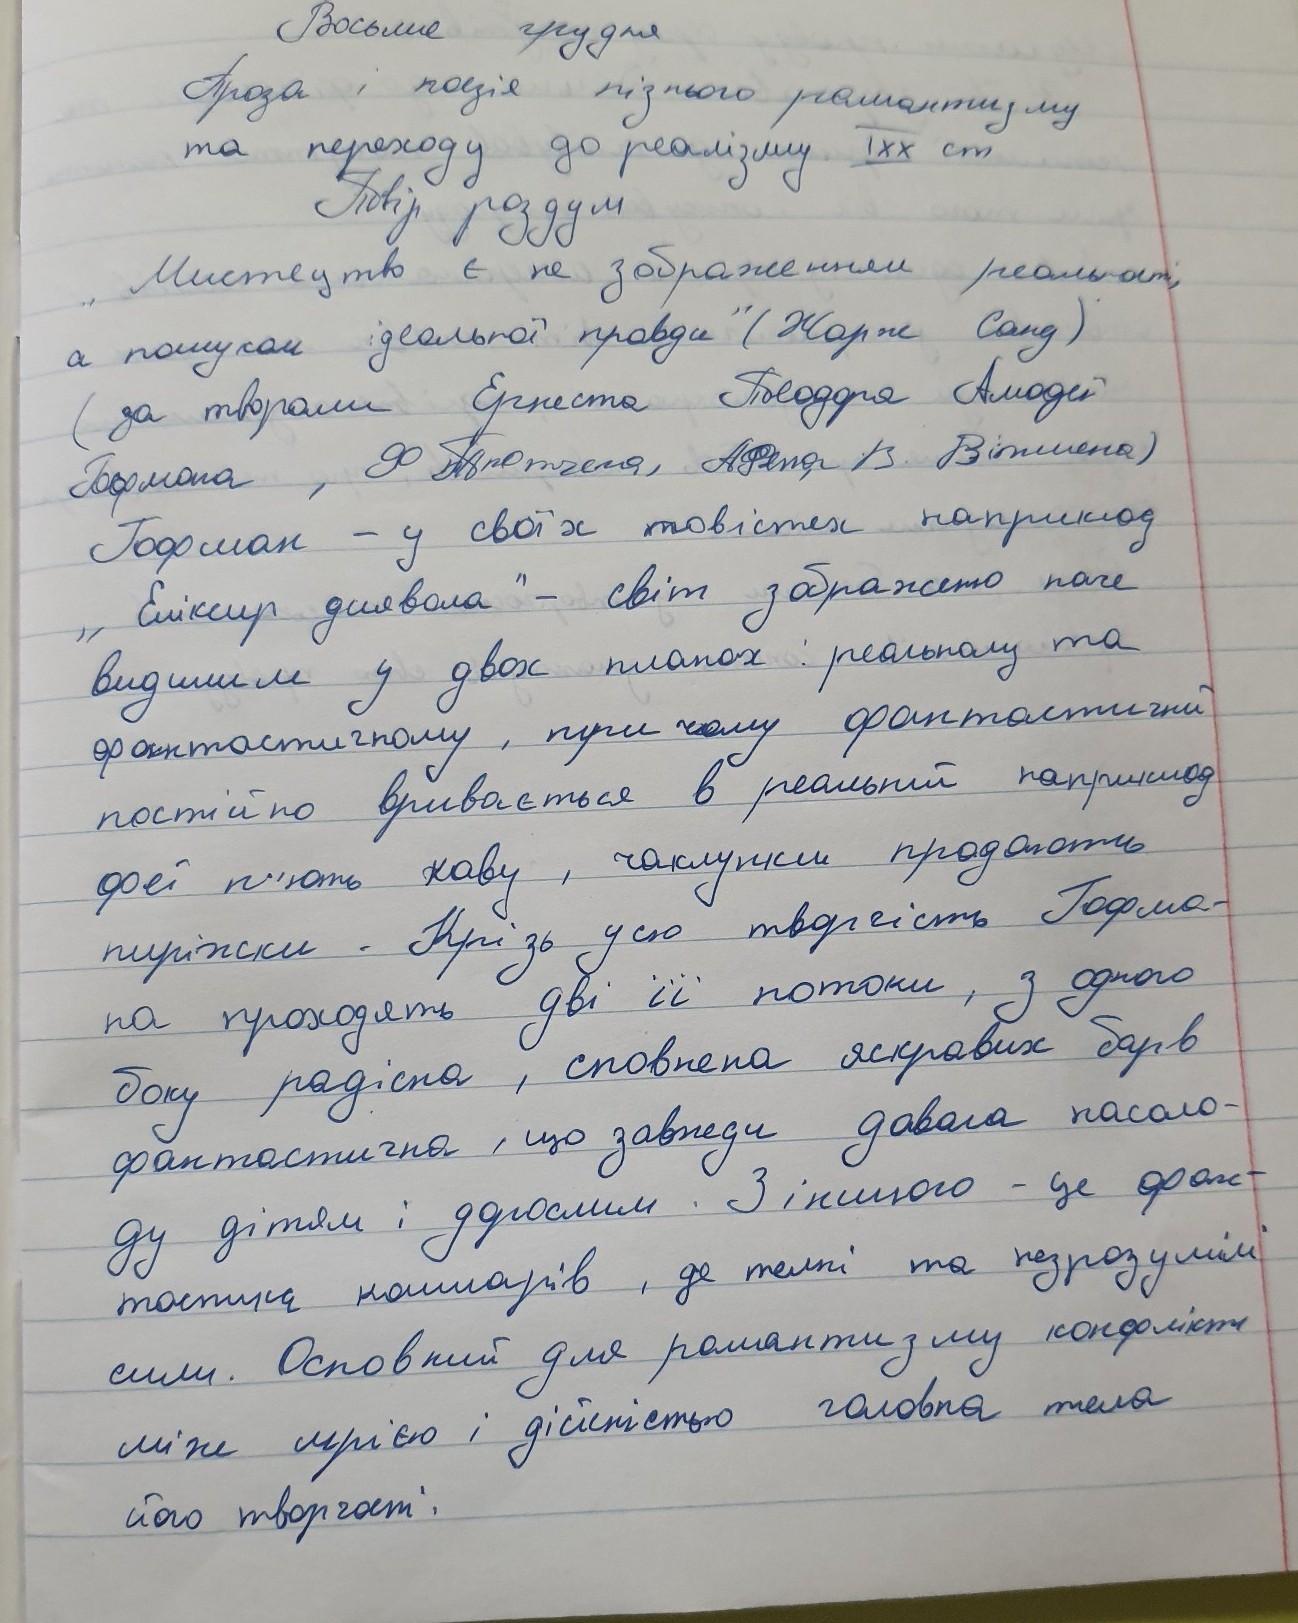 Восьме грудня
Проза і поезія пізнього романтизму
та переходу до реалізму. ІХХ ст
Твір роздум
„Мистецтво є не зображенням реальності,
а пошуком ідеальної правди" (Жорж Санд)
(за творами Ернеста Теодора Амодеї
Гофмана, В. Вітмена)
Гофман - у своїх повістех наприклад
„Еліксир диявола" - світ зображено наче
видимим у двох планах: реальному та
фантастичному, при чому фантастичний
постійно вривається в реальний наприклад
феї п'ють каву, чаклунки продають
пиріжки. Крізь усю творчість Гофма-
на проходять дві її потоки, з одного
боку радісна, сповнена яскравих барв
фантастична, що завжди давала насоло-
ду дітям і дорослим. З іншого - це фан-
тастика кошмарів, де темні та незрозумілі
сили. Основний для романтизму конфлікт
між мрією і дійсністью головна тема
його творчості.